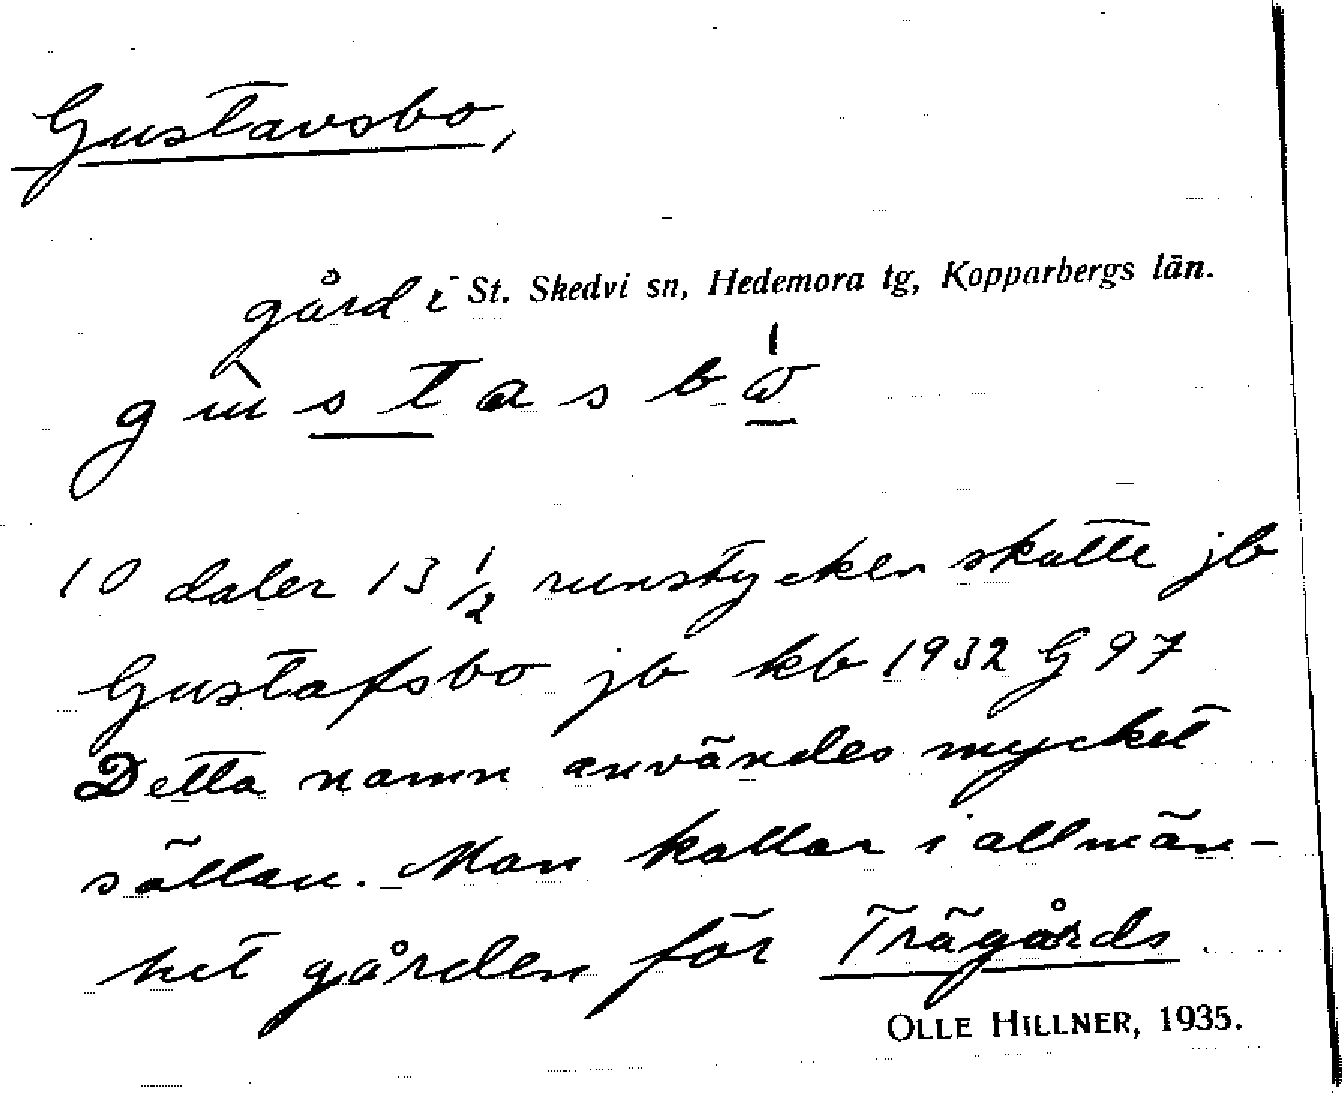 Gustavsbo,
gård i St. Skedvi sn, Hedemora tg, Kopparbergs län.
gùstasbώ
10 daler 13 1/2 runstycken skatte jb
Gustafsbo jb kb 1932 G 97
Detta namn användes mycket
sällan. Man kallar i allmän-
het gården för Trägårds
OLLE HILLNER, 1935.